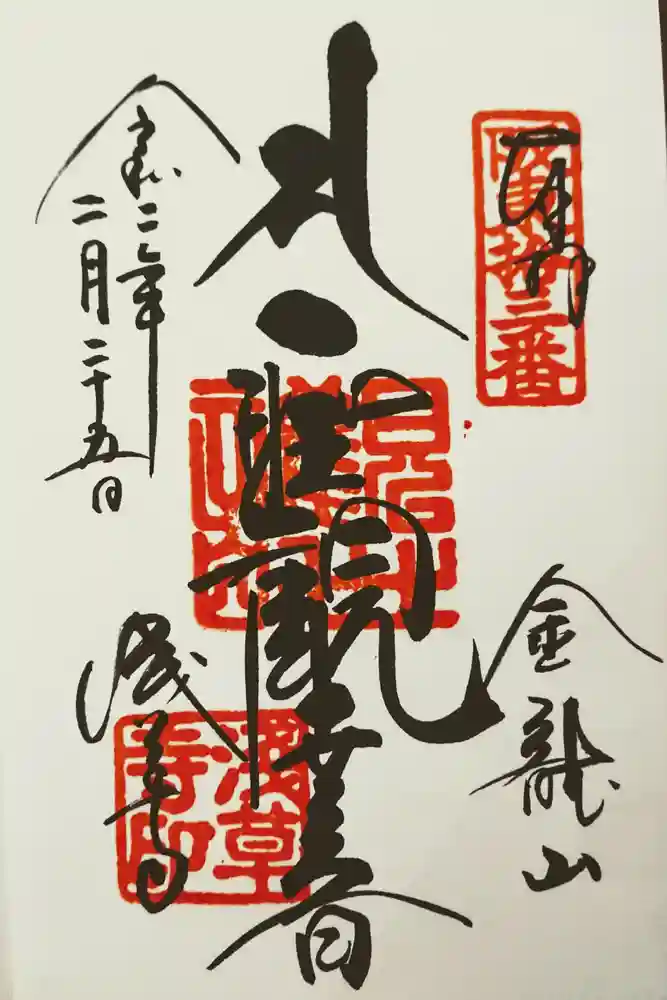 奉拝
阪東拾三番
金龍山
聖観世音
令和二年
二月二十五日
浅草寺
浅草寺印